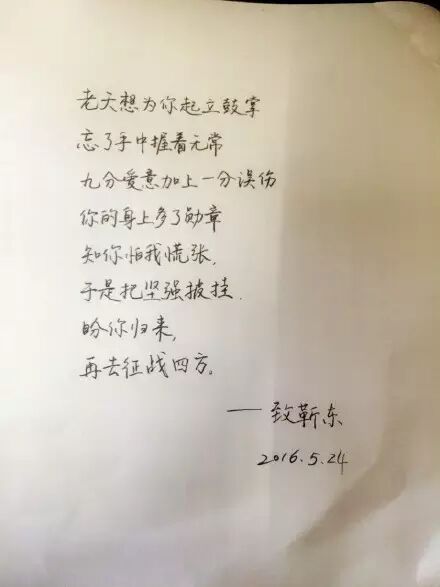 老天想为你起立鼓掌
忘了手中握着无常
九分爱意加上一分误伤
你的身上多了勋章
知你怕我慌张,
于是把坚强披挂.
盼你归来,
再去征战四方。
——致靳东
2016.5.24